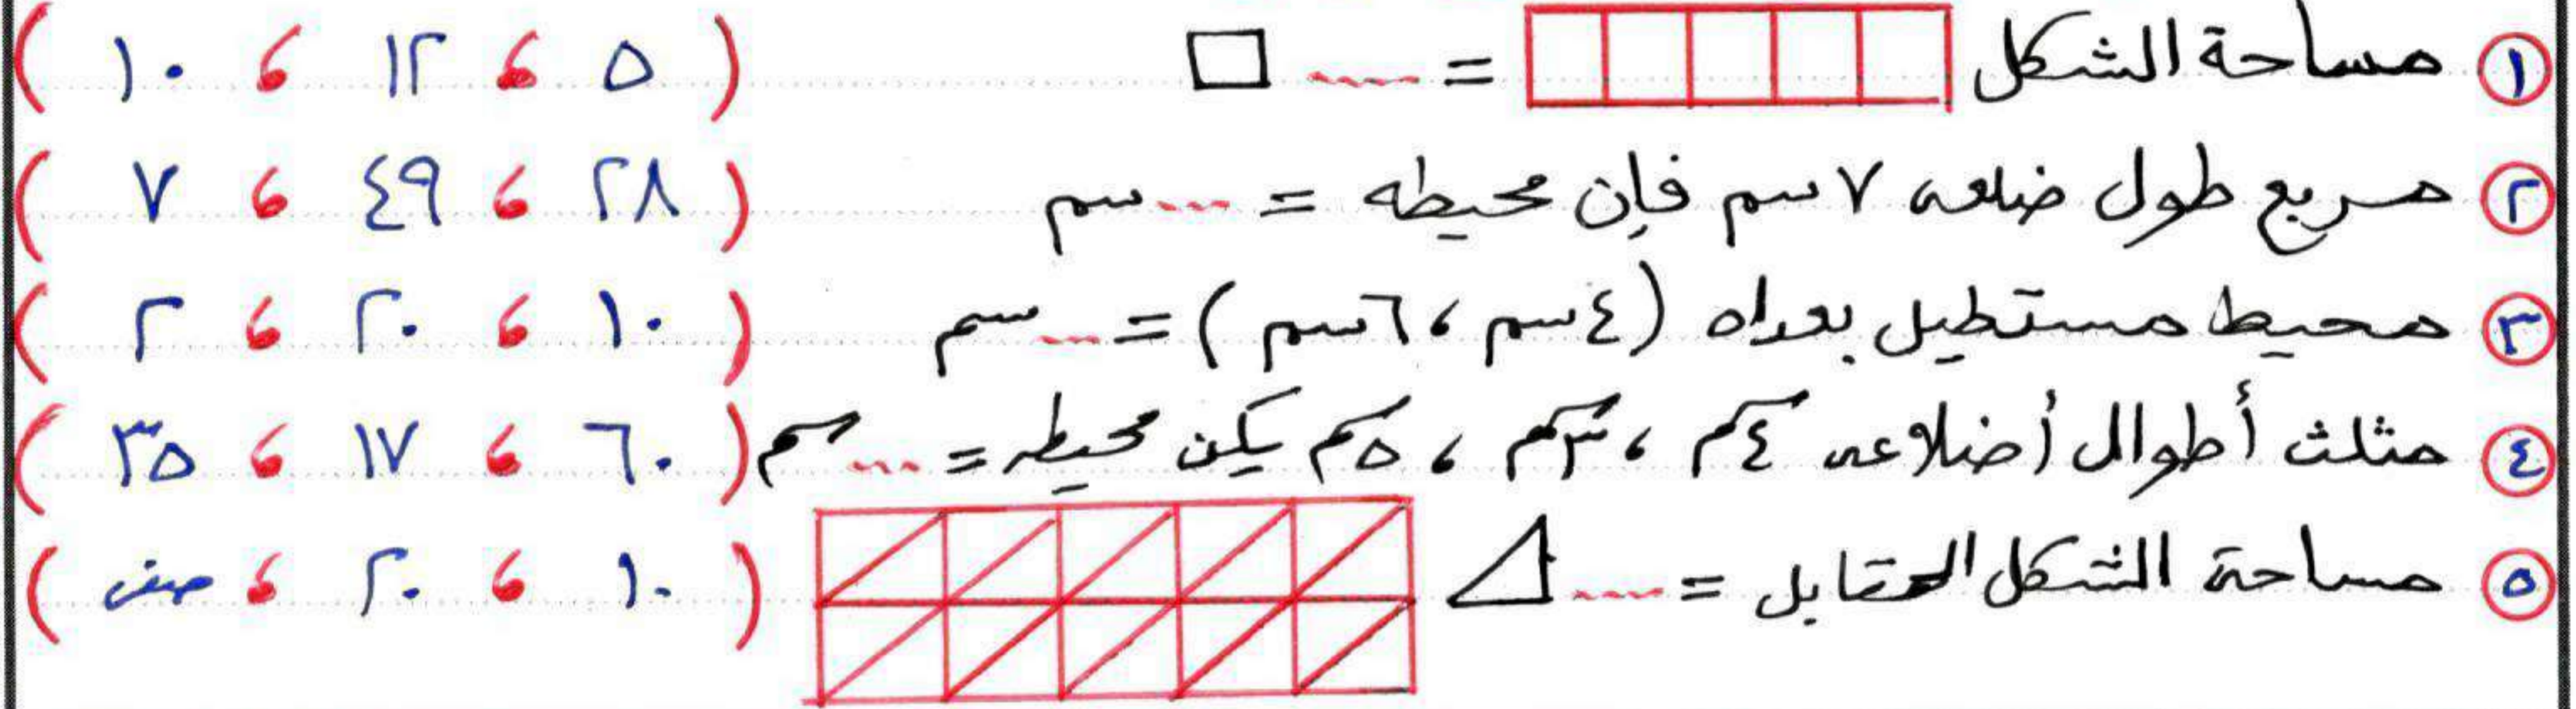 ١ مساحة الشكل = ..... ( ٥ ، ١٢ ، ١٠ )
٢ مربع طول ضلعه ٧ سم فإن محيطه = ... سم ( ٢٨ ، ٤٩ ، ٧ )
٣ محيط مستطيل بعداه ( ٤ سم ، ٦ سم ) = ... سم ( ١٠ ، ٢٠ ، ٢ )
٤ مثلث أطوال أضلاعه ٤ سم ، ٣ سم ، ٥ سم يكن محيطه = ... سم ( ٦٠ ، ١٧ ، ٣٥ )
٥ مساحة الشكل المقابل = .... ( ١٠ ، ٢٠ ، صفر )